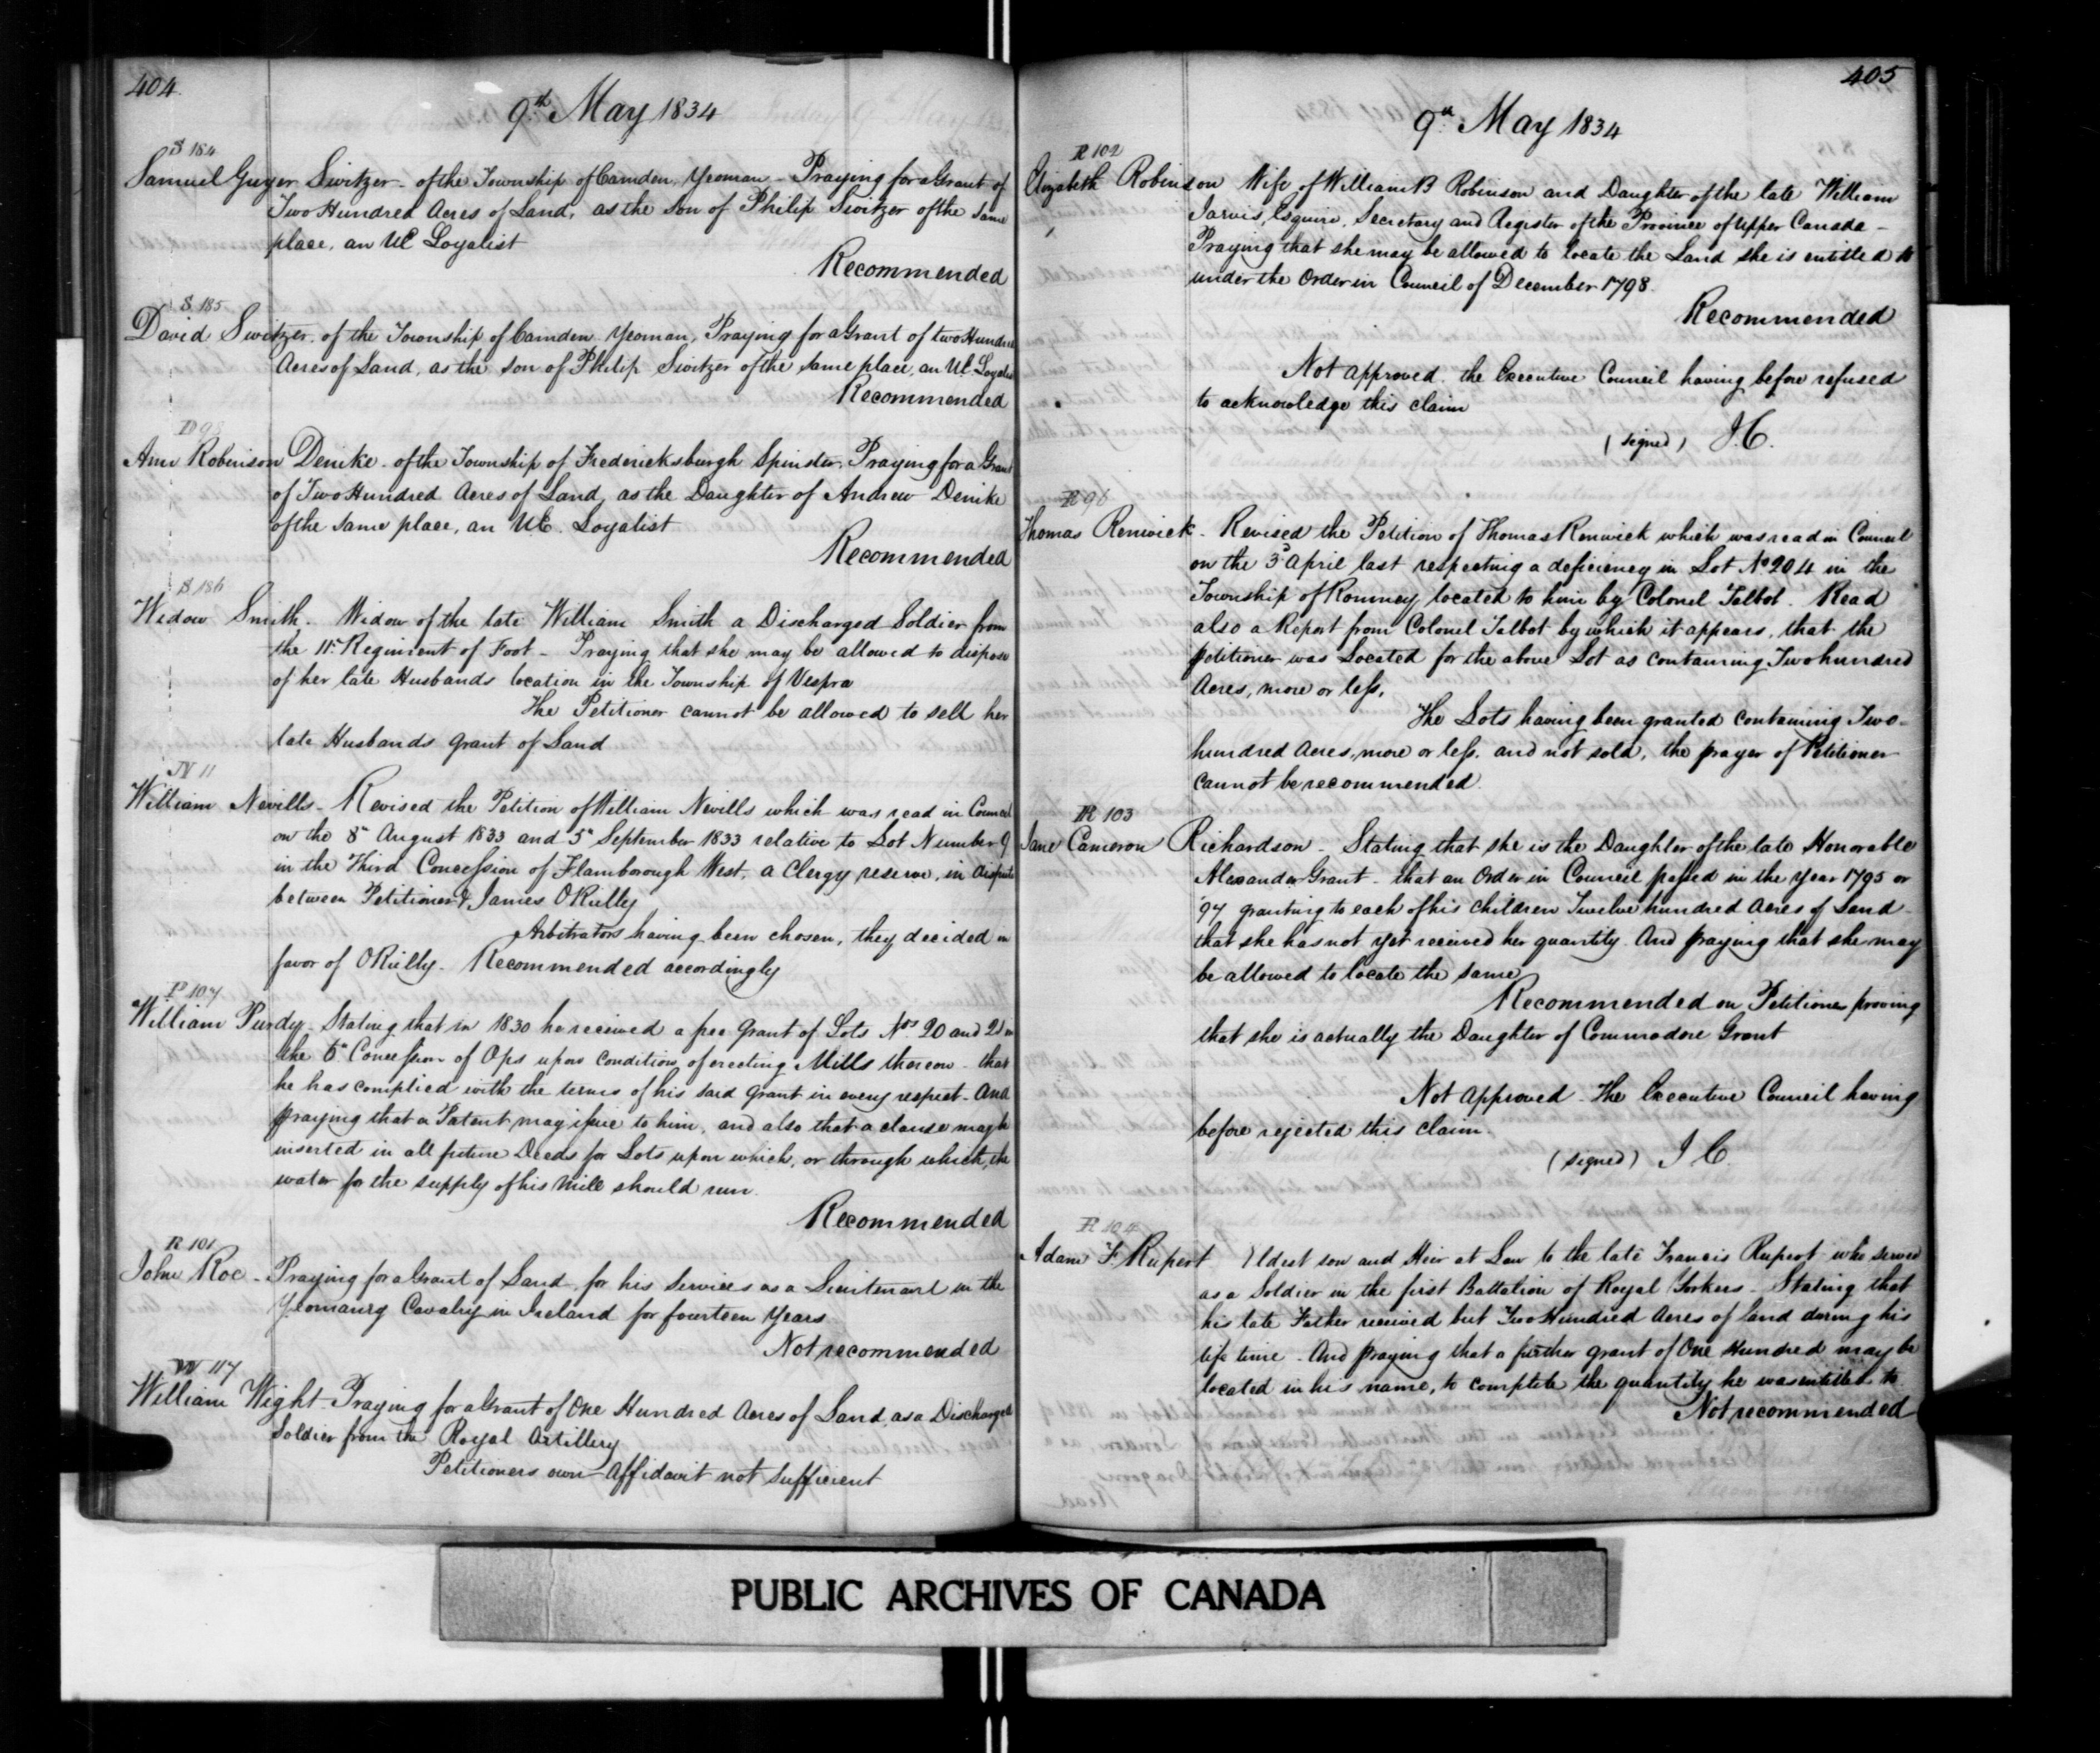 404
9th May 1834
S 184
Samuel Guyer Switzer - of the Township of Camden, Yeoman - Praying for a Grant of
Two Hundred Acres of Land, as the Son of Philip Switzer of the Same
place, an UE Loyalist
Recommended
S 185
David Switzer, of the Township of Camden Yeoman, Praying for a Grant of two Hundred
Acres of Land, as the Son of Philip Switzer of the Same place, an UE Loyalist
Recommended
D 98
Ann Robinson Denike - of the Township of Fredericksburgh Spinster, Praying for a Grant
of Two Hundred Acres of Land, as the Daughter of Andrew Denike
of the Same place, an U.E. Loyalist
Recommended
S 186
Widow Smith. Widow of the late William Smith a Discharged Soldier from
the 11th Regiment of Foot - Praying that she may be allowed to dispose
of her late Husbands location in the Township of Vespra
The Petitioner cannot be allowed to sell her
late Husbands grant of Land
N 11
William Nevills - Revised the Petition of William Nevills which was read in Council
on the 8th August 1833 and 5th September 1833 relative to Lot Number 9
in the Third Concession of Flamborough West, a Clergy reserve, in dispute
between Petitioner & James O'Rielly
Arbitrators having been chosen, they decided in
favor of O'Rielly. Recommended accordingly
P 107
William Purdy - Stating that in 1830 he received a free Grant of Lots Nos 20 and 21 in
the 6th Concession of Ops upon condition of erecting Mills thereon - that
he has complied with the terms of his said Grant in every respect - And
praying that a Patent may issue to him, and also that a clause may be
inserted in all future Deeds for Lots upon which, or through which, the
water for the supply of his Mill should run.
Recommended
R 101
John Roe - Praying for a Grant of Land, for his Services as a Lieutenant in the
Yeomanry Cavalry in Ireland for fourteen Years
Not recommended
W 117
William Wight - Praying for a Grant of One Hundred Acres of Land, as a Discharged
Soldier from the Royal Artillery
Petitioners own Affidavit not Sufficient
405
9th May 1834
R 102
Elizabeth Robinson Wife of William B Robinson and Daughter of the late William
Jarvis, Esquire, Secretary and Register of the Province of Upper Canada -
Praying that she may be allowed to locate the Land she is entitled to
under the Order in Council of December 1798.
Recommended
Not approved. the Executive Council having before refused
to acknowledge this claim
(signed) J.C.
R 98
Thomas Renwick - Revised the Petition of Thomas Renwick which was read in Council
on the 3d April last respecting a deficiency in Lot No 204 in the
Township of Romney, located to him by Colonel Talbot. Read
also a Report from Colonel Talbot by which it appears, that the
petitioner was Located for the above Lot as containing Two hundred
Acres, more or less.
The Lots having been granted containing Two-
hundred Acres, more or less. and not sold, the prayer of Petitioner
cannot be recommended.
R 103
Jane Cameron Richardson - Stating that she is the Daughter of the late Honorable
Alexander Grant - that an Order in Council passed in the Year 1795 or
97 granting to each of his children Twelve hundred Acres of Land -
that she has not yet received her quantity. And praying that she may
be allowed to locate the same
Recommended on Petitioner proving
that she is actually the Daughter of Commodore Grant
Not Approved - The Executive Council having
before rejected this claim.
(signed) J C.
R 104
Adam F. Rupert Eldest son and Heir at Law to the late Francis Rupert who served
as a Soldier in the first Battalion of Royal Yorkers - Stating that
his late Father received but Two Hundred Acres of land during his
life time - And praying that a further grant of One Hundred may be
located in his name, to complete the quantity he was entitled to.
Not recommended
PUBLIC ARCHIVES OF CANADA